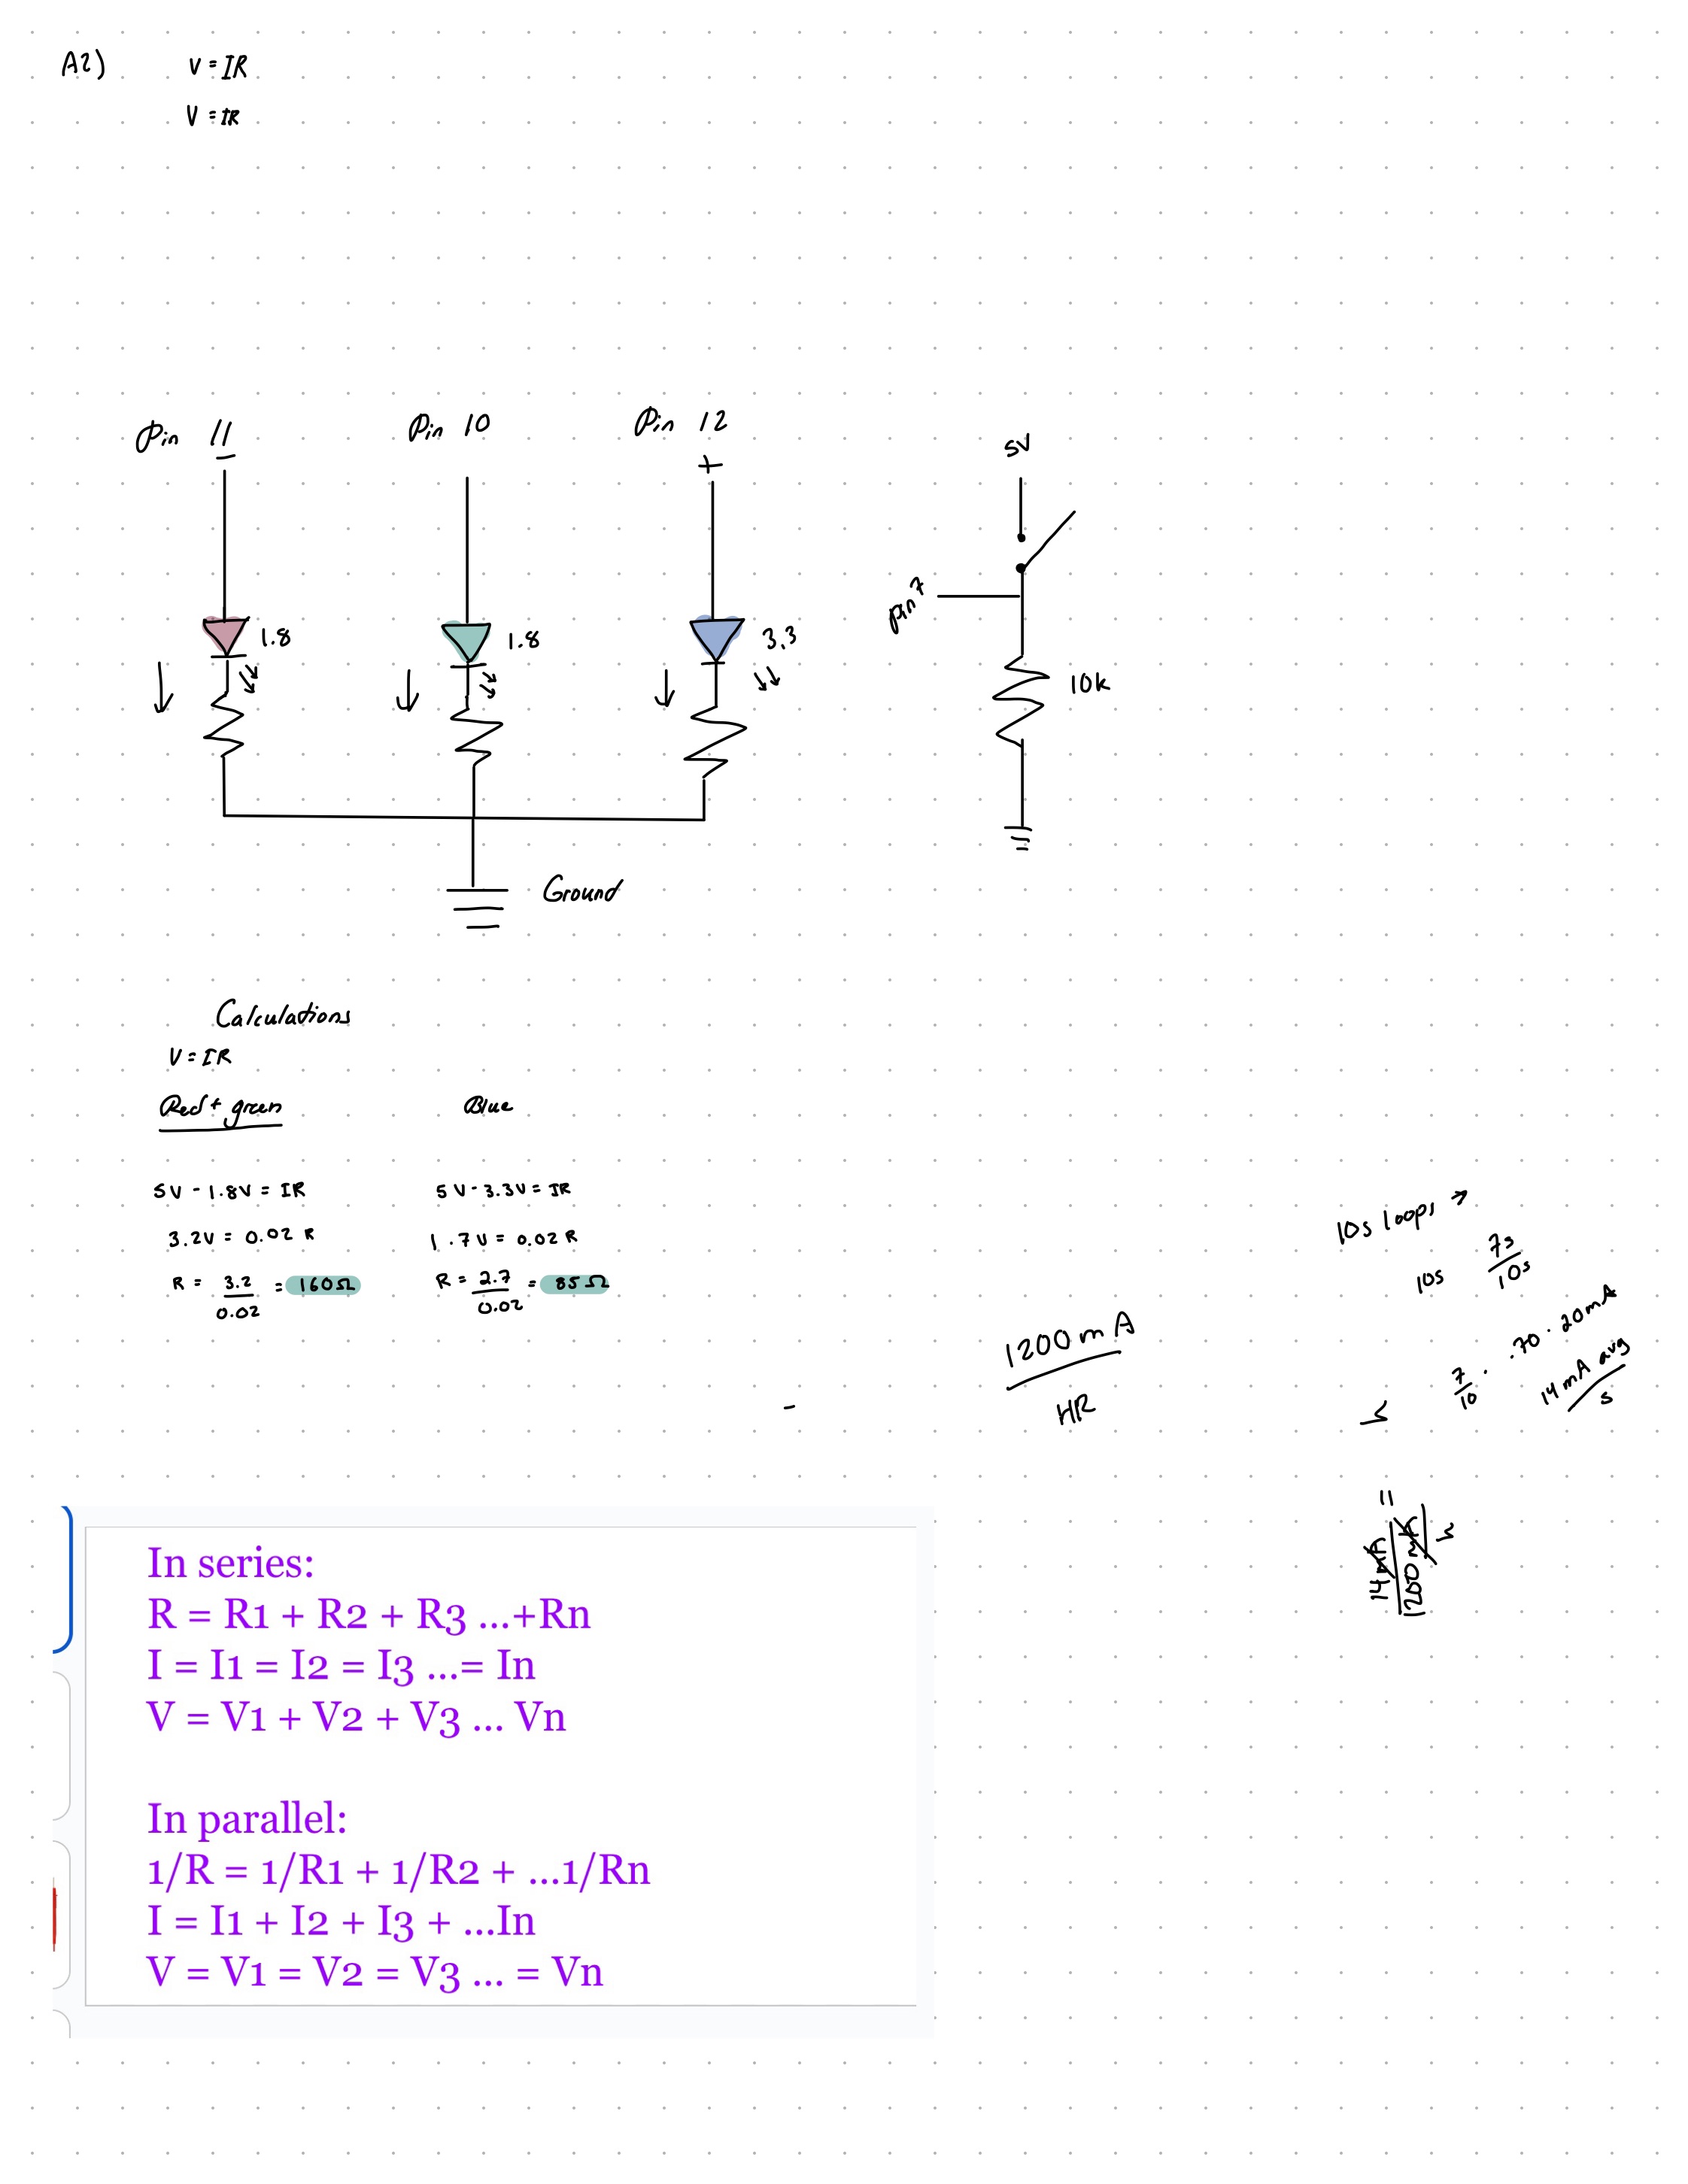 A2)
V = IR
V = IR
Pin 11
Pin 10
Pin 12
−
+
5V
pin 7
1.8
1.8
3.3
10k
Ground
Calculations
V = IR
Red + green
Blue
5V - 1.8V = IR
3.2V = 0.02 R
R = 3.2 / 0.02 = 160Ω
5V - 3.3V = IR
1.7V = 0.02 R
R = 2.7 / 0.02 = 85Ω
1200 mA / HR
10s loops →
10s 7s / 10s
7/10 · .70 · 20mA
14 mA avg / s
14 mA / 1200 mA =
In series:
R = R1 + R2 + R3 ...+Rn
I = I1 = I2 = I3 ...= In
V = V1 + V2 + V3 ... Vn
In parallel:
1/R = 1/R1 + 1/R2 + ...1/Rn
I = I1 + I2 + I3 + ...In
V = V1 = V2 = V3 ... = Vn